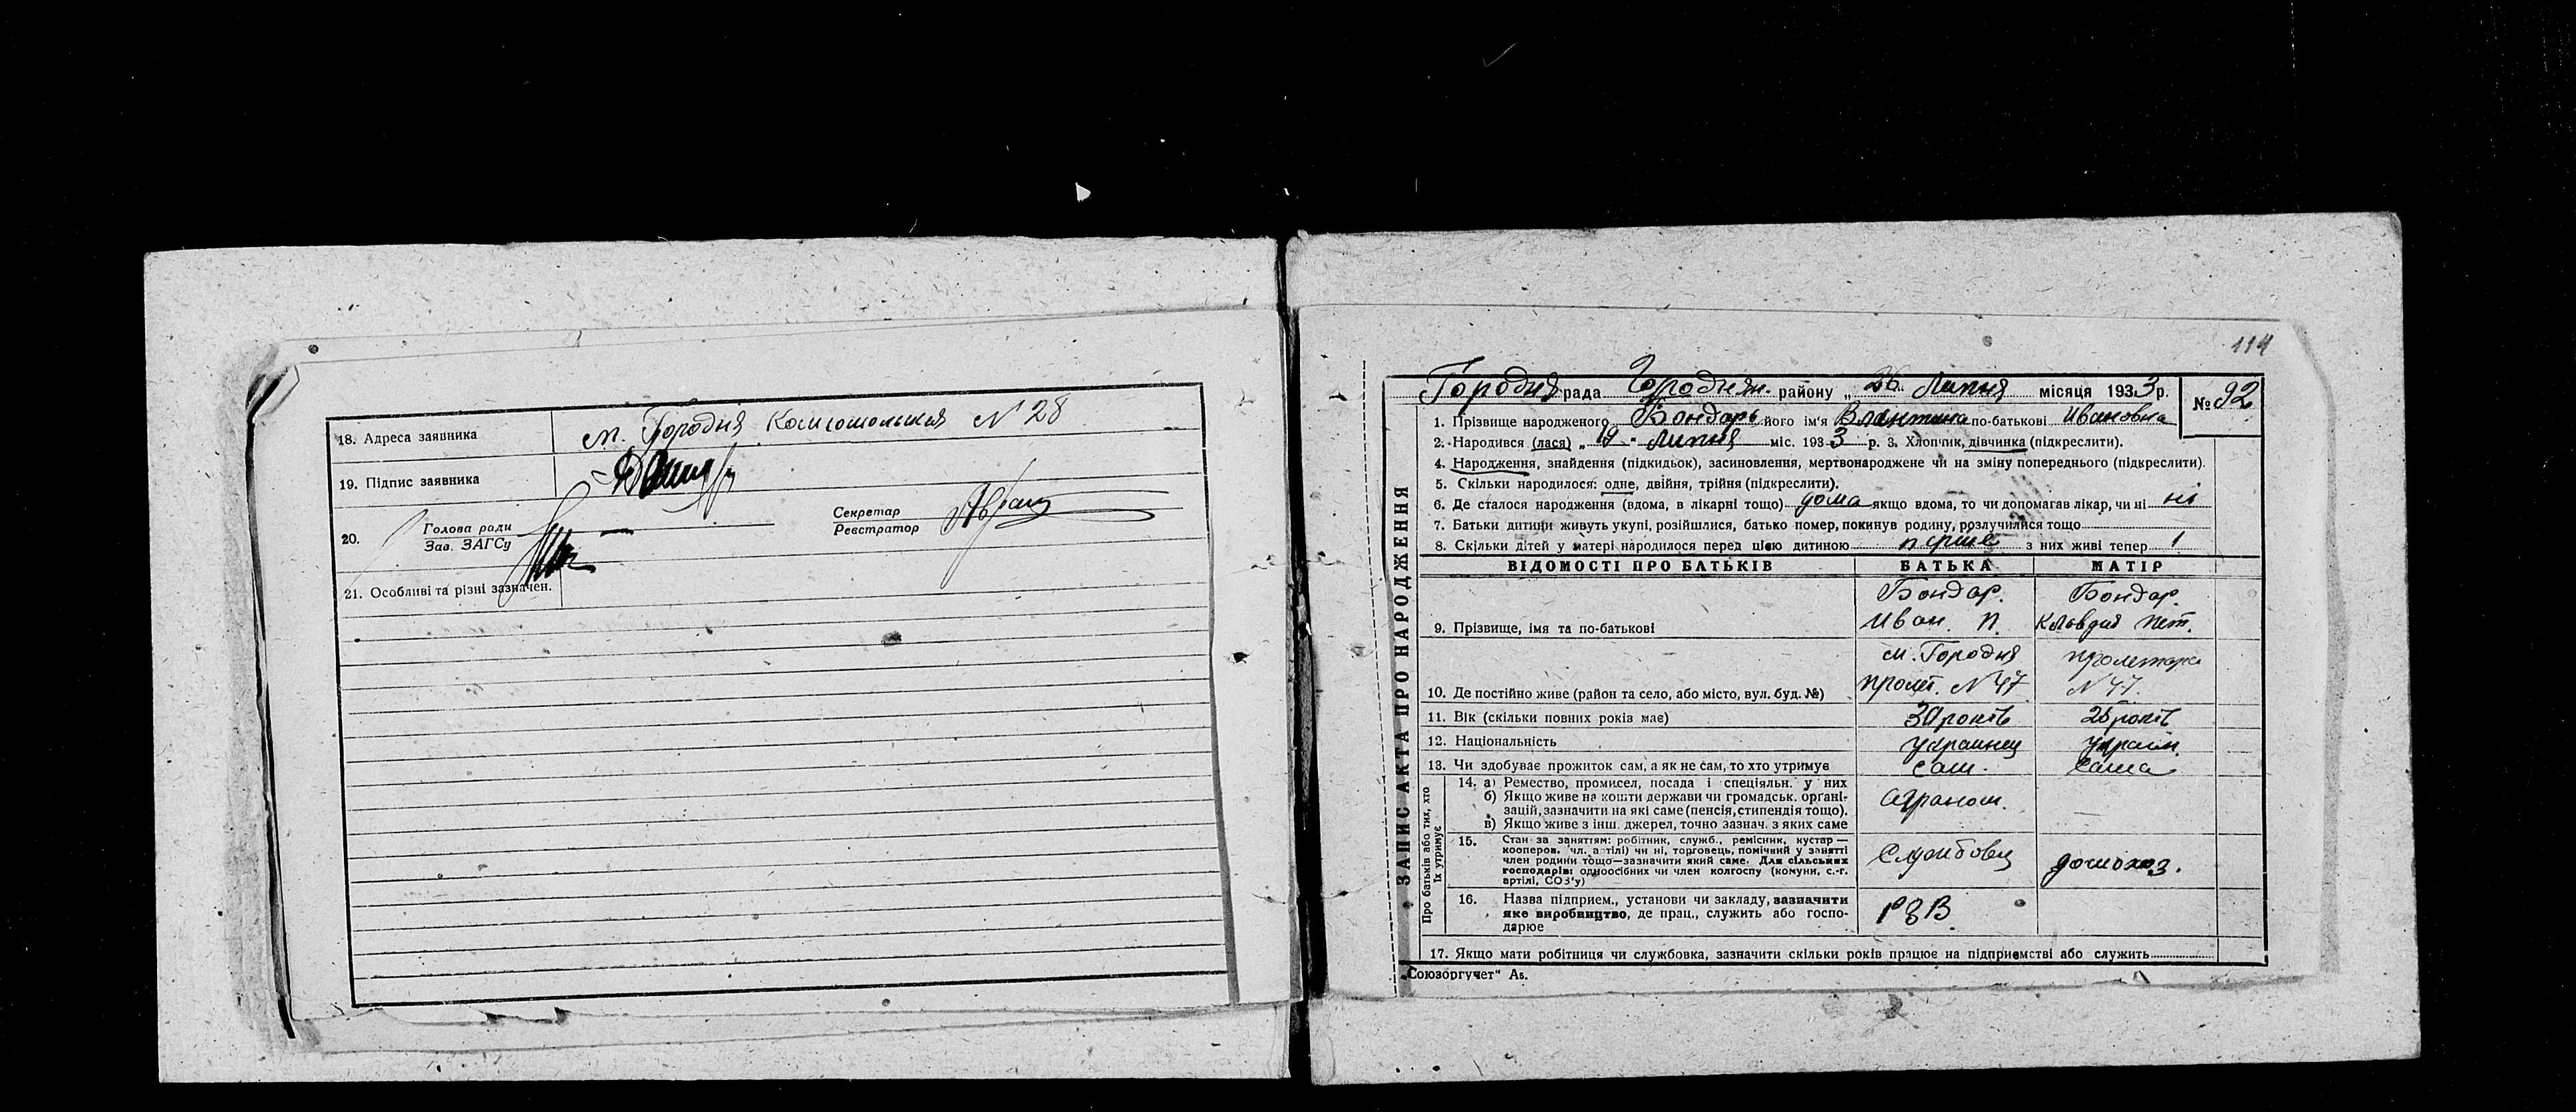 18. Адреса заявника м. Городня Комсомольская N 28
19. Підпис заявника
20. Голова ради
Зав. ЗАГСу
Секретар
Реєстратор
21. Особливі та різні зазначен.
114
ЗАПИС АКТА ПРО НАРОДЖЕННЯ
Городня рада Городнян. району „26" Липня місяця 1933 р. № 92
1. Прізвище народженого Бондарь його ім'я Влентина по-батькові Ивановна
2. Народився (лася) „19" Липня міс. 1933 р. 3. Хлопчик, дівчинка (підкреслити).
4. Народження, знайдення (підкидьок), засиновлення, мертвонароджене чи на зміну попереднього (підкреслити).
5. Скільки народилося: одне, двійня, трійня (підкреслити).
6. Де сталося народження (вдома, в лікарні тощо) дома якщо вдома, то чи допомагав лікар, чи ні ні
7. Батьки дитини живуть укупі, розійшлися, батько помер, покинув родину, розлучилися тощо
8. Скільки дітей у матері народилося перед цією дитиною перше з них живі тепер 1
ВІДОМОСТІ ПРО БАТЬКІВ БАТЬКА МАТІР
9. Прізвище, імя та по-батькові
Бондар. Иван. П.
Бондар. Клавдия Пет.
10. Де постійно живе (район та село, або місто, вул. буд. №)
м. Городня
пролет. N 47
пролетарс
N 47.
11. Вік (скільки повних років має) 30 років 28 років
12. Національність украинец украин.
13. Чи здобуває прожиток сам, а як не сам, то хто утримує сам. сама
Про батьків або тих, хто їх утримує
14. а) Ремество, промисел, посада і спеціяльн. у них
б) Якщо живе на кошти держави чи громадськ. органі-
зацій, зазначити на які саме (пенсія, стипендія тощо).
в) Якщо живе з інш. джерел, точно зазнач. з яких саме
аграном.
—
15. Стан за заняттям: робітник, служб., ремісник, кустар —
кооперов. (чл. артілі) чи ні, торговець, помічний у занятті
член родини тощо—зазначити який саме. Для сільських
господарів: одноосібних чи член колгоспу (комуни, с.-г.
артілі, СОЗ'у)
Службовец
домохоз.
16. Назва підприєм., установи чи закладу, зазначити
яке виробництво, де прац., служить або госпо-
дарює
РЗВ
17. Якщо мати робітниця чи службовка, зазначити скільки років працює на підприємстві або служить
„Союзоргучет" Аз.